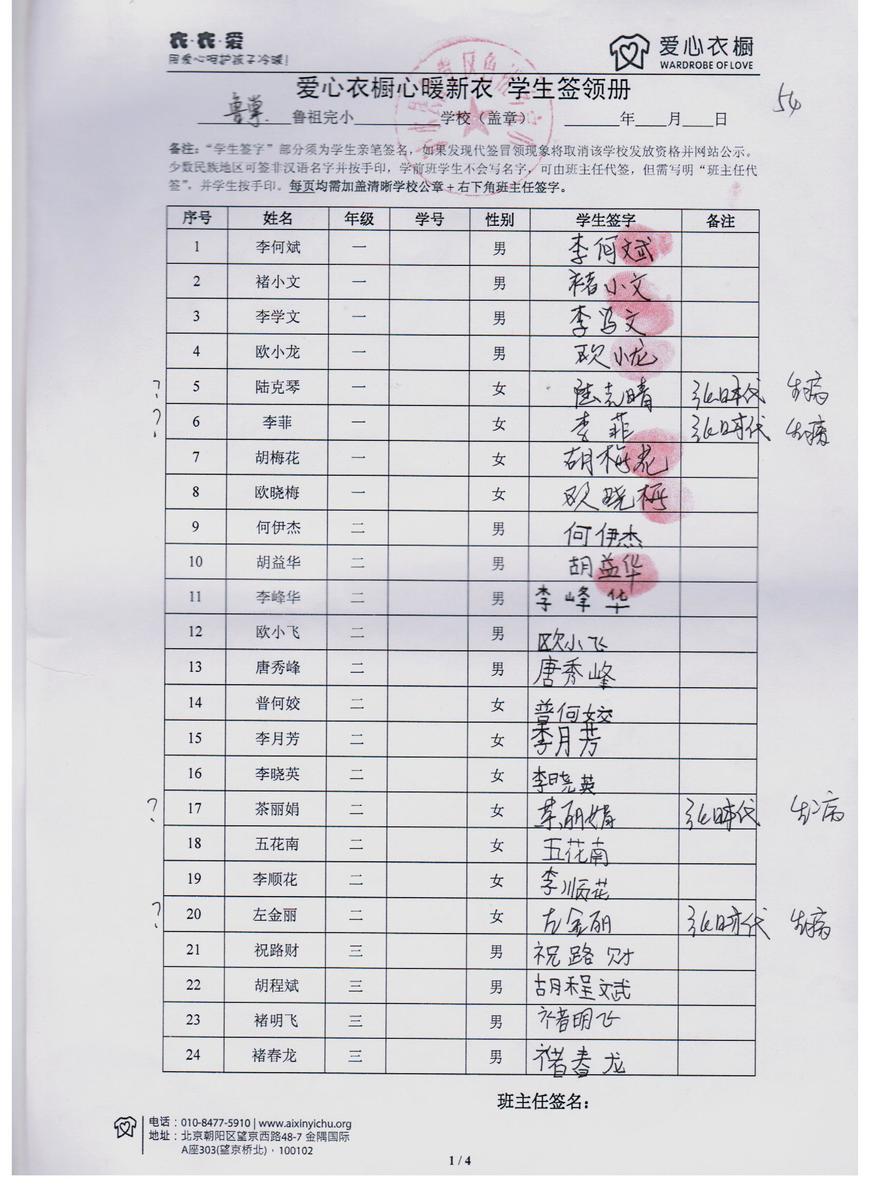 衣·衣·爱
用爱心呵护孩子冷暖!
爱心衣橱
WARDROBE OF LOVE
爱心衣橱心暖新衣 学生签领册
54
鲁祖完小 学校（盖章） 年 月 日
备注：“学生签字”部分须为学生亲笔签名，如果发现代签冒领现象将取消该学校发放资格并网站公示。
少数民族地区可签非汉语名字并按手印，学前班学生不会写名字，可由班主任代签，但需写明“班主任代
签”，并学生按手印。每页均需加盖清晰学校公章+右下角班主任签字。
序号 姓名 年级 学号 性别 学生签字 备注
1 李何斌 一 男 李何斌
2 褚小文 一 男 褚小文
3 李学文 一 男 李学文
4 欧小龙 一 男 欧小龙
? 5 陆克琴 一 女 陆克晴 生病
? 6 李菲 一 女 李菲 生病
7 胡梅花 一 女 胡梅花
8 欧晓梅 一 女 欧晓梅
9 何伊杰 二 男 何伊杰
10 胡益华 二 男 胡益华
11 李峰华 二 男 李峰华
12 欧小飞 二 男 欧小飞
13 唐秀峰 二 男 唐秀峰
14 普何姣 二 女 普何姣
15 李月芳 二 女 李月芳
16 李晓英 二 女 李晓英
? 17 茶丽娟 二 女 茶丽娟 生病
18 五花南 二 女 五花南
19 李顺花 二 女 李顺花
? 20 左金丽 二 女 左金丽 生病
21 祝路财 三 男 祝路财
22 胡程斌 三 男 胡程斌
23 褚明飞 三 男 褚明飞
24 褚春龙 三 男 褚春龙
班主任签名：
电话：010-8477-5910 | www.aixinyichu.org
地址：北京朝阳区望京西路48-7 金隅国际
A座303(望京桥北)，100102
1 / 4